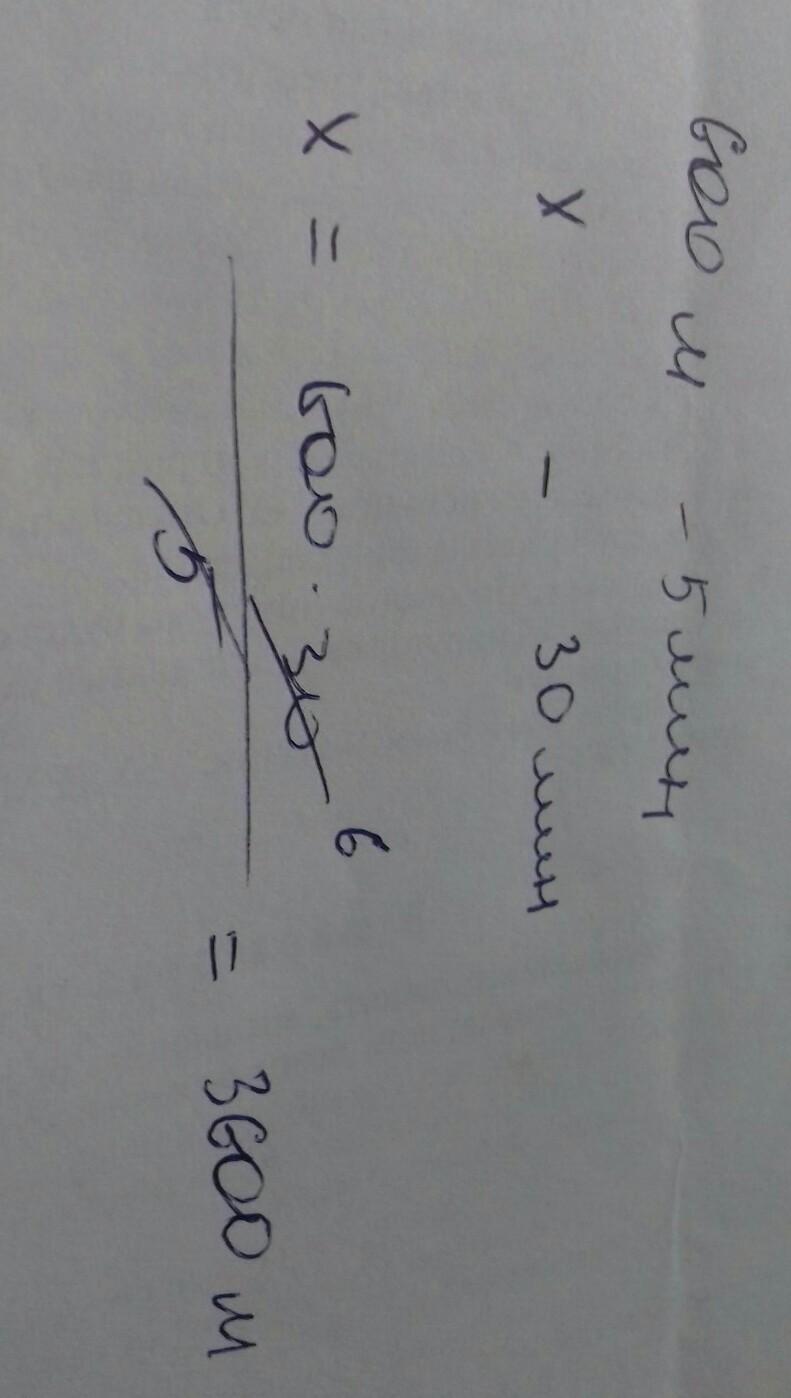 600 м - 5 мин
х - 30 мин
х = 600 · 30 6
5 = 3600 м